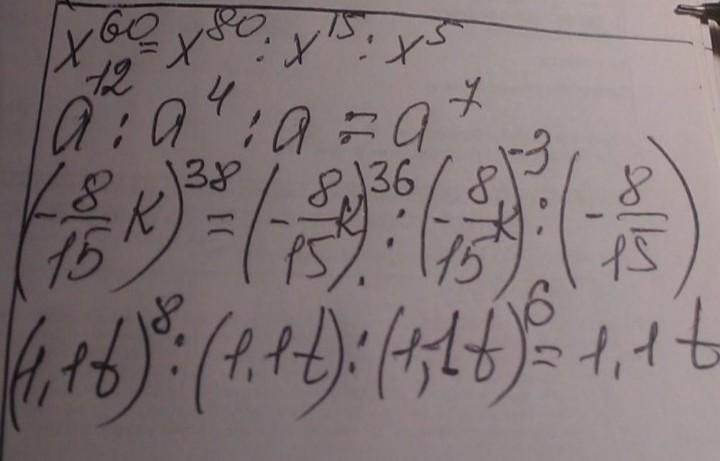 x⁶⁰ = x⁸⁰ : x¹⁵ : x⁵
a¹² : a⁴ : a = a⁷
(-8/15 K)³⁸ = (-8/15 K)³⁶ : (-8/15 K)⁻³ : (-8/15)
(1,1t)⁸ : (1,1t) : (1,1t)⁶ = 1,1t